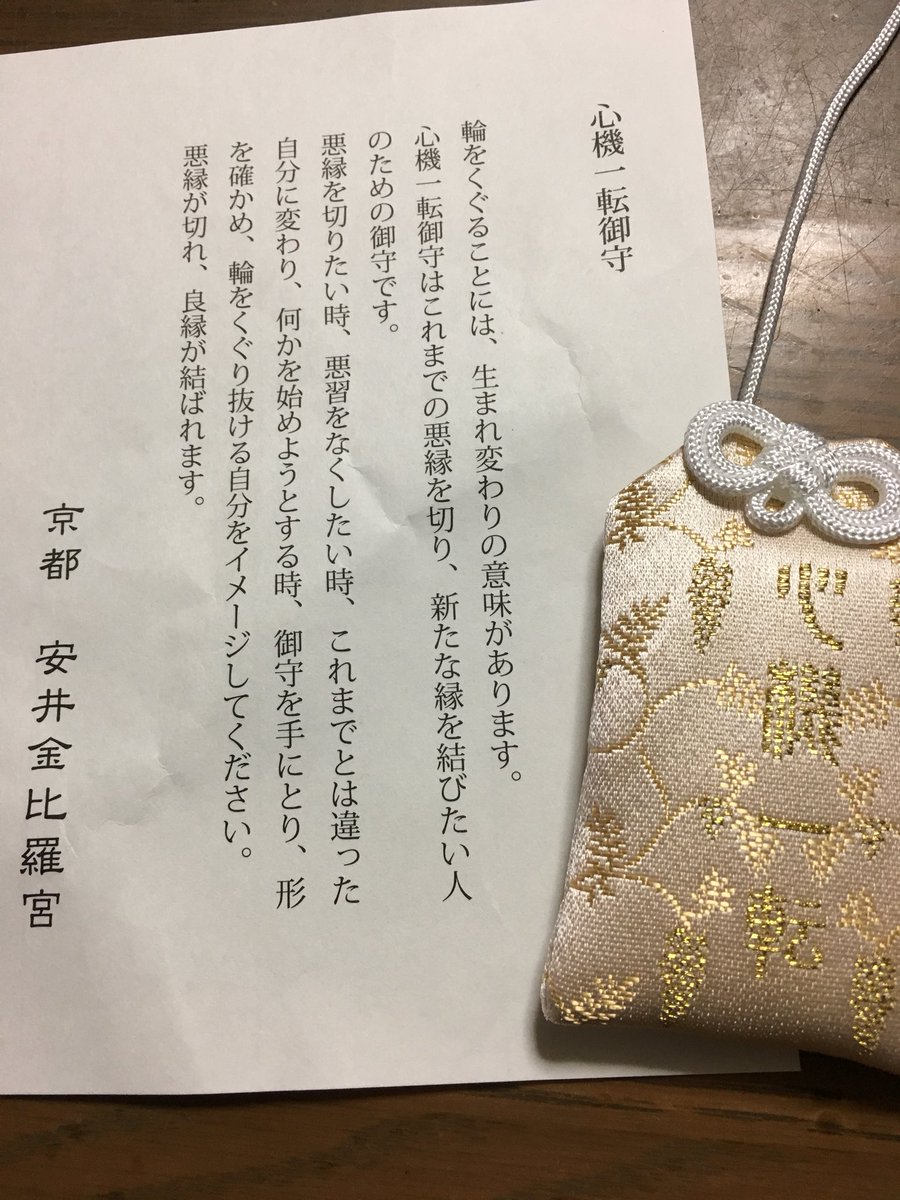 心機一転御守
輪をくぐることには、生まれ変わりの意味があります。
心機一転御守はこれまでの悪縁を切り、新たな縁を結びたい人
のための御守です。
悪縁を切りたい時、悪習をなくしたい時、これまでとは違った
自分に変わり、何かを始めようとする時、御守を手にとり、形
を確かめ、輪をくぐり抜ける自分をイメージしてください。
悪縁が切れ、良縁が結ばれます。
京都 安井金比羅宮
心機一転